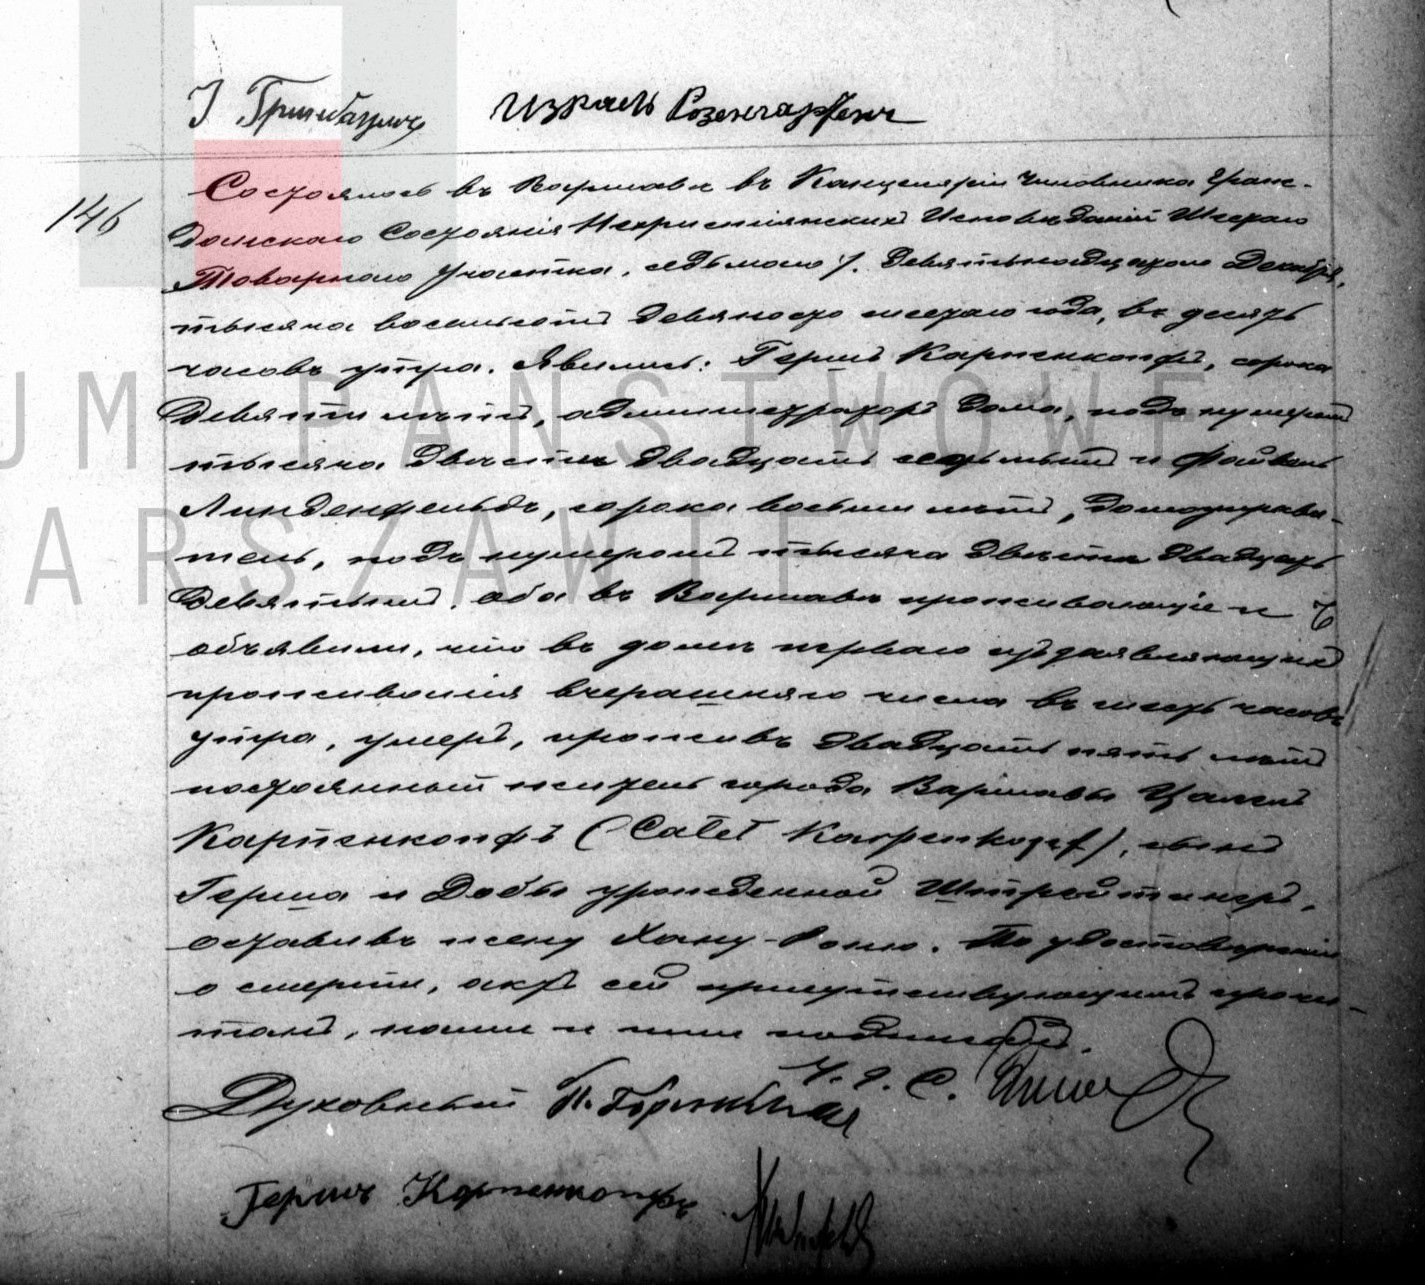 І Гринбаумъ Израель Розенгартенъ
146
Состоялось въ Варшавѣ въ Канцеляріи Чиновника Граж-
данскаго Состоянія Нехристіянскихъ Исповѣданій Шестаго
Товарнаго Участка, седьмого /. Девятьнадцатаго Декабря,
тысяча восемьсотъ девяносто шестаго года, въ десять
часовъ утра. Явились: Гершъ Карпенкопфъ, сорока
девяти лѣтъ, администраторъ дома, подъ нумеромъ
тысяча двѣсти двадцать седьмымъ и Файвель
Линденфельдъ, сорока восьми лѣтъ, домоуправи-
тель, подъ нумеромъ тысяча двѣсти двадцать
девятымъ. оба въ Варшавѣ проживающіе и
объявили, что въ домѣ перваго изъ заявляющихъ
проживанія вчерашняго числа въ шесть часовъ
утра, умеръ, проживъ двадцать пять лѣтъ
постоянный житель города Варшавы Цалелъ
Карпенкопфъ (Calel Karpenkopf), сынъ
Герша и Добы урожденной
оставивъ жену Хану- По удостовѣреніи
о смерти, актъ сей присутствующимъ прочи-
танъ, нами и ими подписанъ.
Ч. Г. С.
Духовный
Гершъ Карпенкопфъ